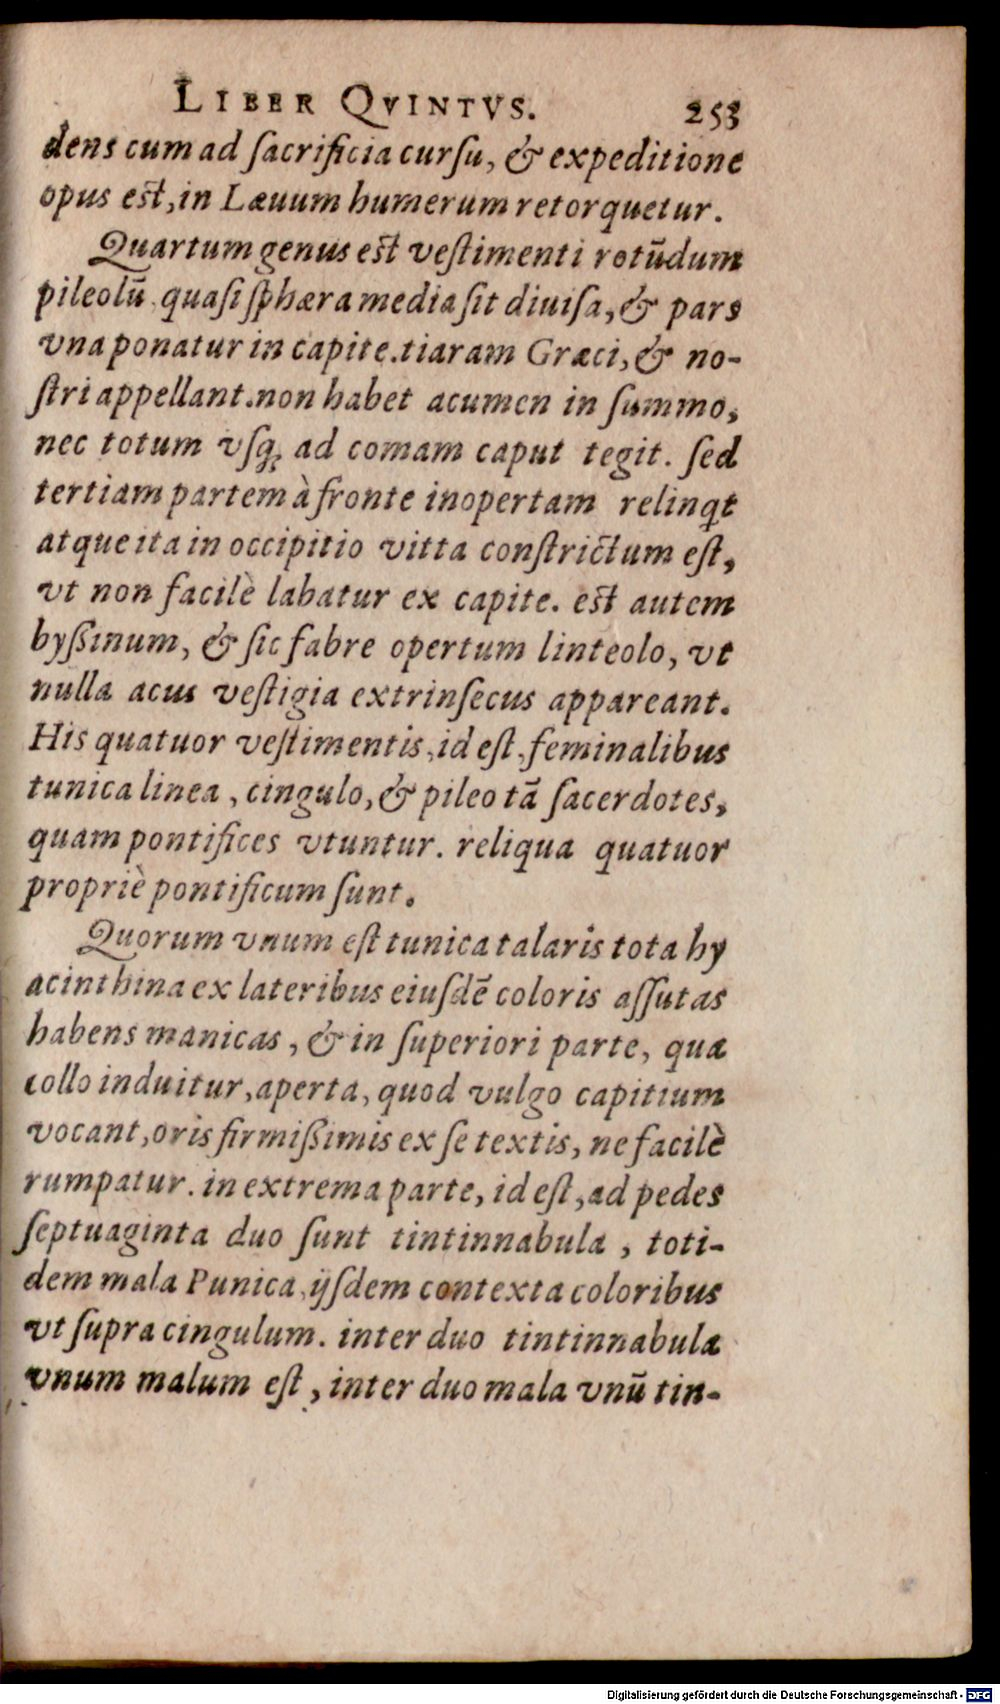 LIBER QVINTVS. 253
dens cum ad ſacrificia curſu, & expeditione
opus eſt, in Læuum humerum retorquetur.
Quartum genus eſt veſtimenti rotūdum
pileolū quaſi ſphæra media ſit diuiſa, & pars
vna ponatur in capite. tiaram Græci, & no-
ſtri appellant. non habet acumen in ſummo,
nec totum vſq; ad comam caput tegit. ſed
tertiam partem à fronte inopertam relinq̃t
atque ita in occipitio vitta conſtrictum eſt,
vt non facilè labatur ex capite. eſt autem
byßinum, & ſic fabre opertum linteolo, vt
nulla acus veſtigia extrinſecus appareant.
His quatuor veſtimentis, id eſt, feminalibus
tunica linea, cingulo, & pileo tā ſacerdotes,
quam pontifices vtuntur. reliqua quatuor
propriè pontificum ſunt.
Quorum vnum eſt tunica talaris tota hy
acinthina ex lateribus eiuſdē coloris aſſutas
habens manicas, & in ſuperiori parte, qua
collo induitur, aperta, quod vulgo capitium
vocant, oris firmißimis ex ſe textis, ne facilè
rumpatur. in extrema parte, id eſt, ad pedes
ſeptuaginta duo ſunt tintinnabula, toti-
dem mala Punica, ijſdem contexta coloribus
vt ſupra cingulum. inter duo tintinnabula
vnum malum eſt, inter duo mala vnū tin-
Digitalisierung gefördert durch die Deutsche Forschungsgemeinschaft - DFG